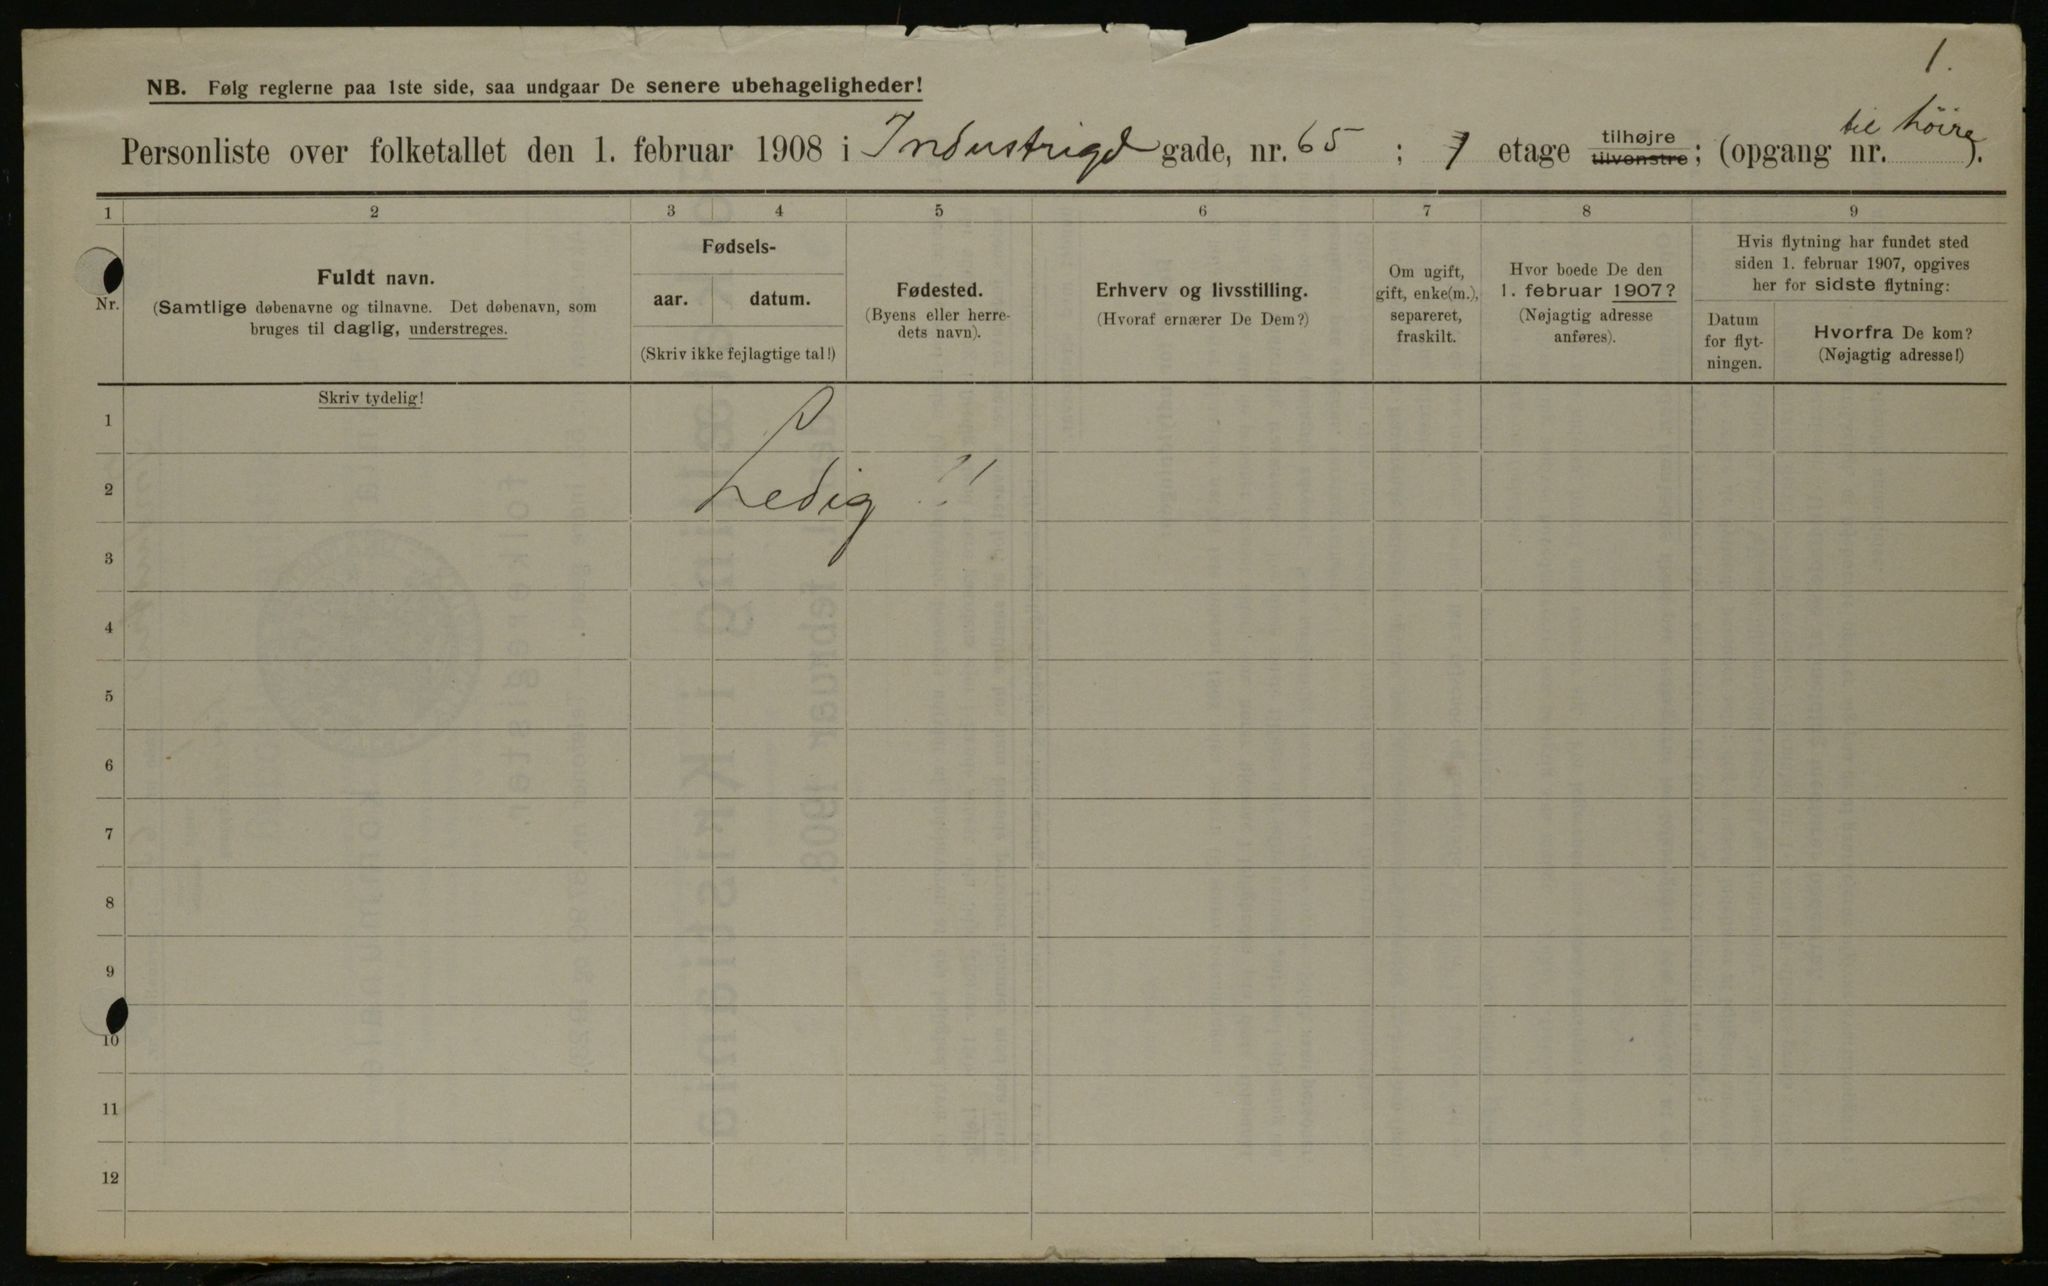 1.
NB. Følg reglerne paa 1ste side, saa undgaar De senere ubehageligheder!
Personliste over folketallet den 1. februar 1908 i Industrigd gade, nr. 65 ; 1 etage tilhøjre tilvenstre; (opgang nr. til höire).
1 2 3 4 5 6 7 8 9
Nr.
Fuldt navn.
(Samtlige døbenavne og tilnavne. Det døbenavn, som
bruges til daglig, understreges.
Fødsels-
aar. datum.
(Skriv ikke fejlagtige tal!)
Fødested.
(Byens eller herre-
dets navn).
Erhverv og livsstilling.
(Hvoraf ernærer De Dem?)
Om ugift,
gift, enke(m.),
separeret,
fraskilt.
Hvor boede De den
1. februar 1907?
(Nøjagtig adresse
anføres).
Hvis flytning har fundet sted
siden 1. februar 1907, opgives
her for sidste flytning:
Datum
for flyt-
ningen.
Hvorfra De kom?
(Nøjagtig adresse!)
Skriv tydelig!
1
2 Ledig !!
3
4
5
6
7
8
9
10
11
12